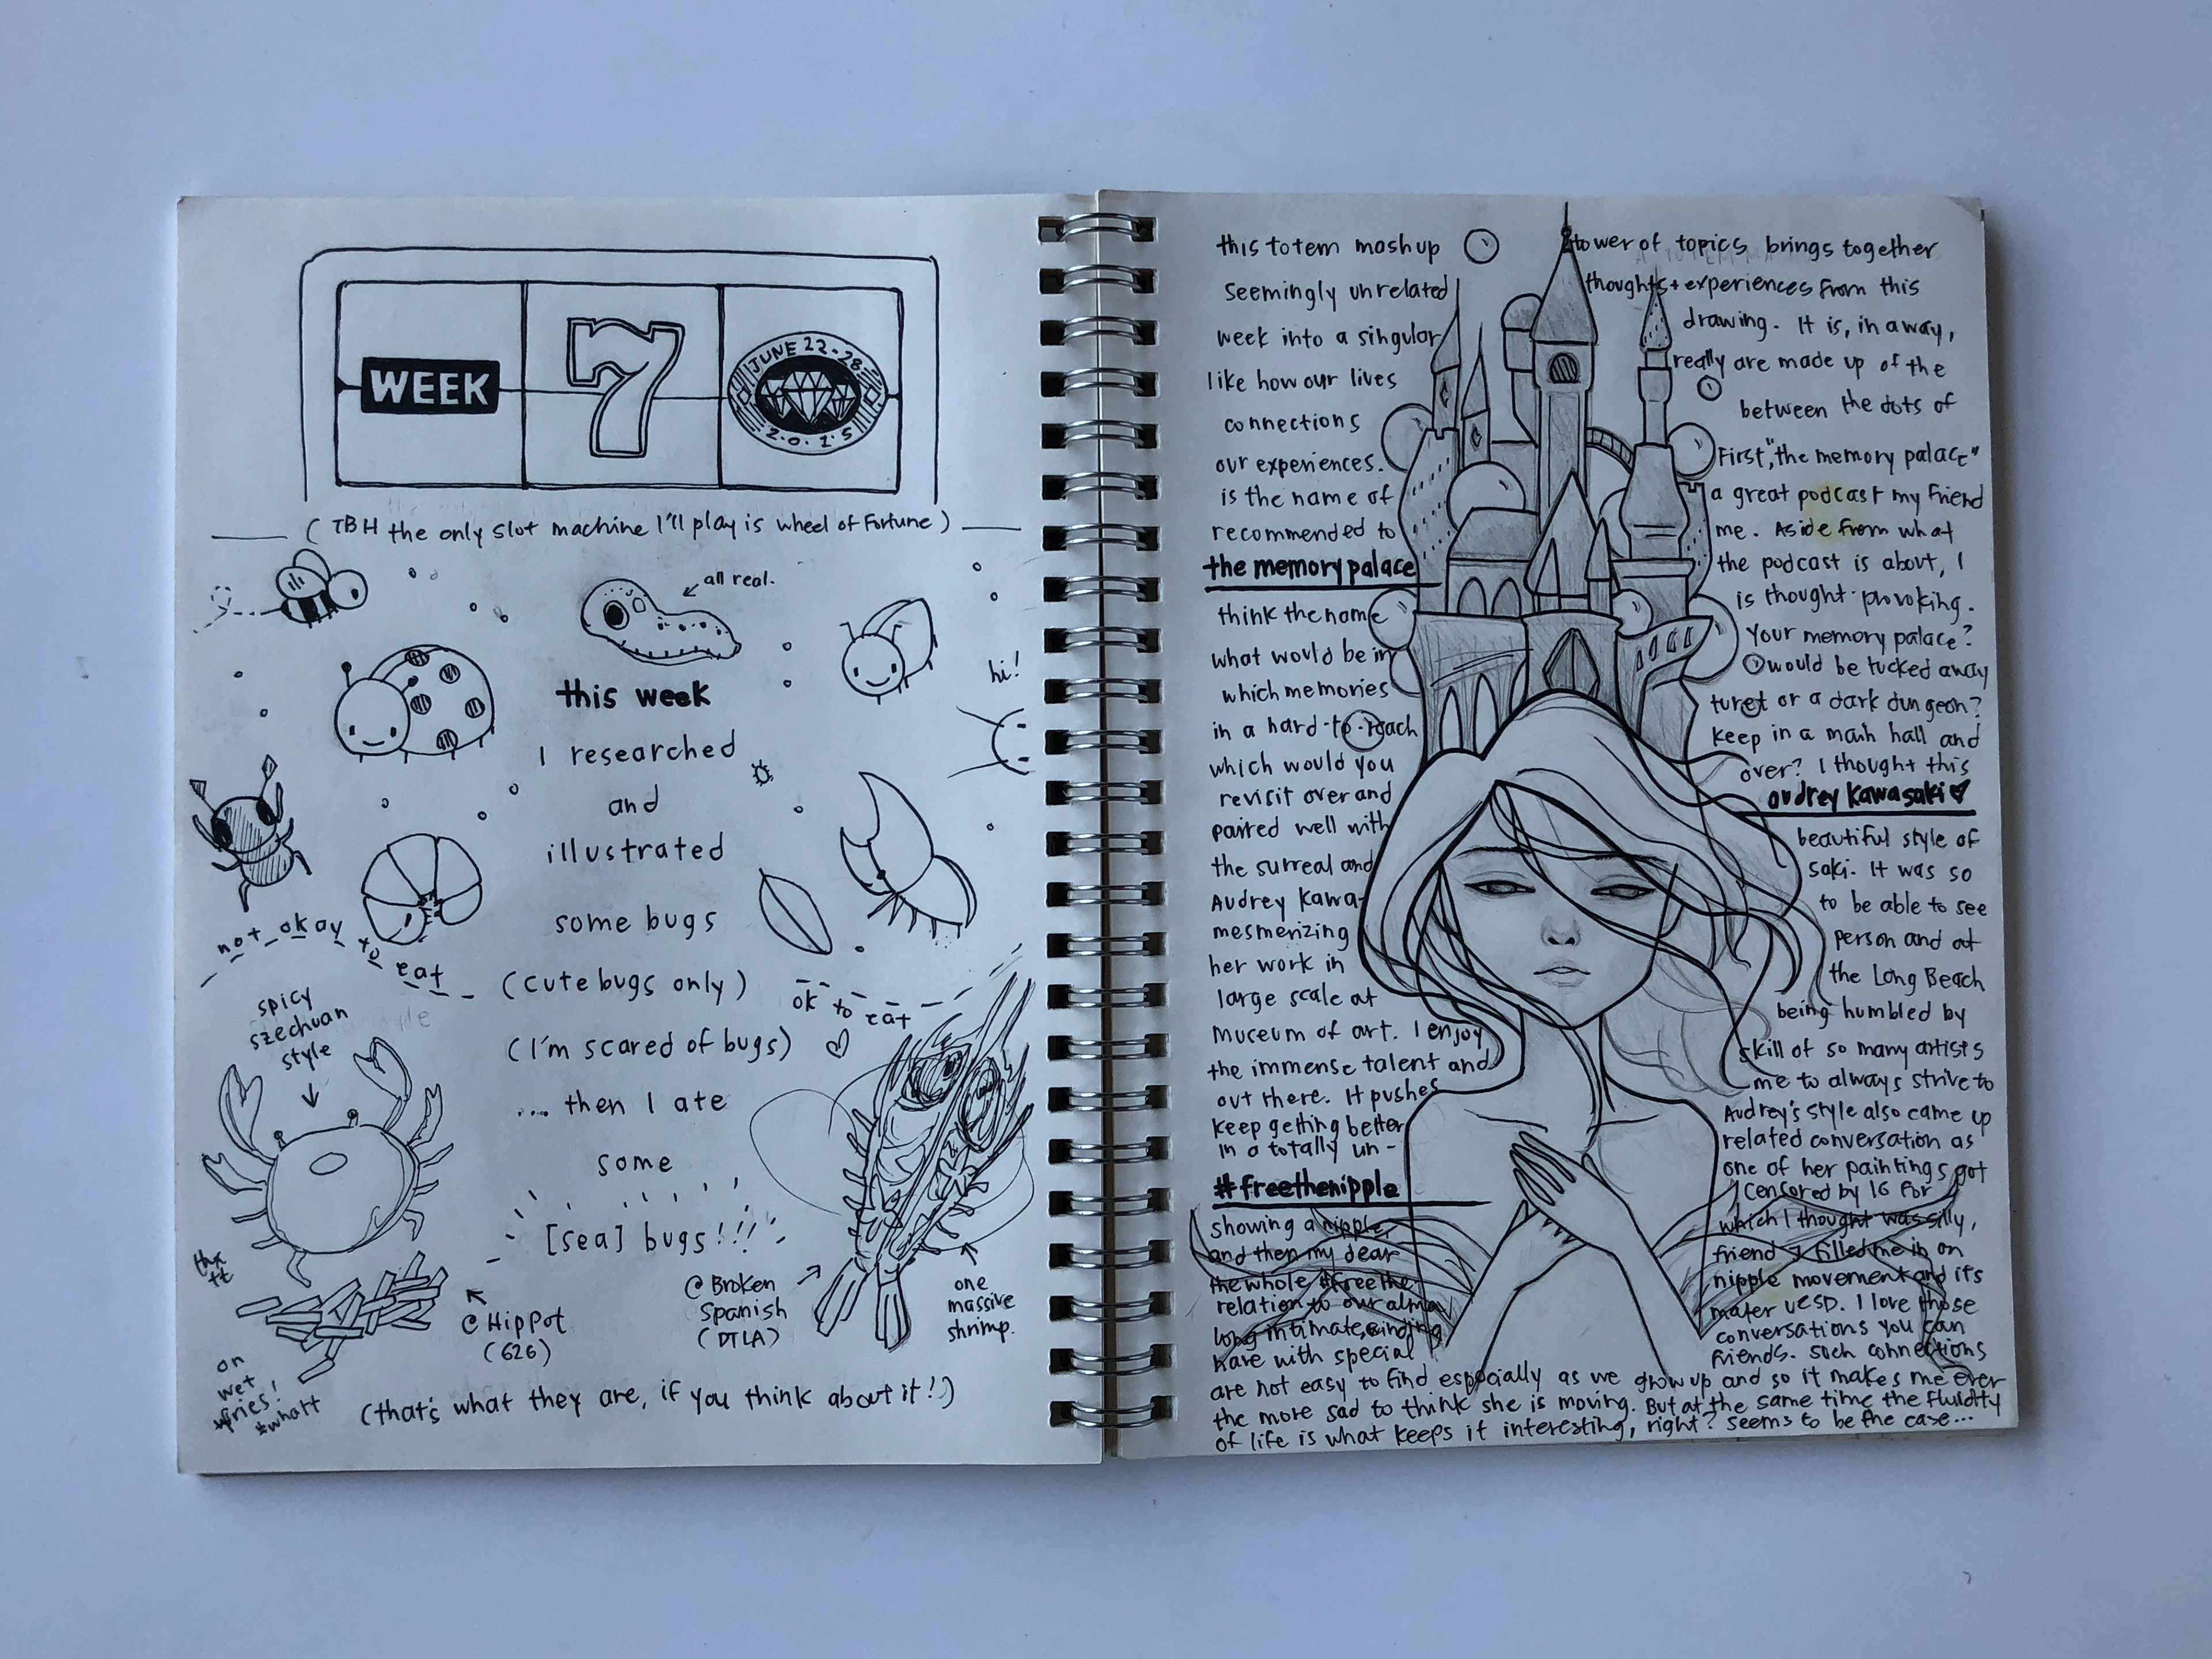 WEEK 7 JUNE 22-28 2.0.1.5
(TBH the only slot machine I'll play is wheel of fortune)
all real.
hi!
this week
I researched
and
illustrated
some bugs
(cute bugs only)
(I'm scared of bugs)
... then I ate
some
[sea] bugs!!!
not okay to eat
ok to eat
spicy
szechuan
style
thx
tt
on
wet
fries!
*whatt
@ HipPot
(626)
@ Broken
Spanish
(DTLA)
one
massive
shrimp.
(that's what they are, if you think about it!)
this totem mashup tower of topics brings together
seemingly unrelated thoughts + experiences from this
week into a singular drawing. It is, in a way,
like how our lives really are made up of the
connections between the dots of
our experiences. First, "the memory palace"
is the name of a great podcast my friend
recommended to me. Aside from what
the memory palace
the podcast is about, I
think the name is thought-provoking.
what would be in Your memory palace?
which memories would be tucked away
in a hard-to-reach turet or a dark dungeon?
which would you keep in a main hall and
revisit over and over? I thought this
audrey kawasaki
paired well with
the surreal and beautiful style of
Audrey Kawa- saki. It was so
mesmerizing to be able to see
her work in person and at
large scale at the Long Beach
Museum of art. I enjoy being humbled by
the immense talent and skill of so many artists
out there. It pushes me to always strive to
keep getting better Audrey's style also came up
in a totally un- related conversation as
#freethenipple
one of her paintings got
censored by IG for
showing a nipple, which I thought was silly,
and then my dear friend J filled me in on
the whole #free the nipple movement and its
relation to our alma mater UCSD. I love those
long intimate, winding conversations you can
have with special friends. such connections
are not easy to find especially as we grow up and so it makes me ever
the more sad to think she is moving. But at the same time the fluidity
of life is what keeps it interesting, right? seems to be the case...